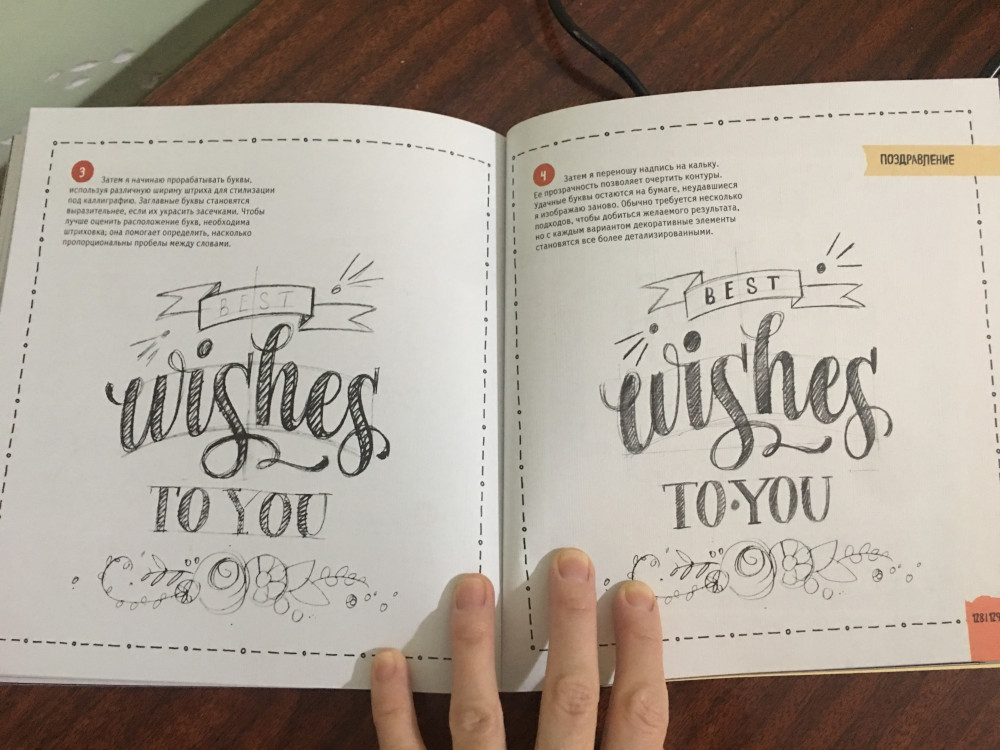 3
Затем я начинаю прорабатывать буквы,
используя различную ширину штриха для стилизации
под каллиграфию. Заглавные буквы становятся
выразительнее, если их украсить засечками. Чтобы
лучше оценить расположение букв, необходима
штриховка; она помогает определить, насколько
пропорциональны пробелы между словами.
BEST
wishes
TO YOU
4
Затем я переношу надпись на кальку.
Ее прозрачность позволяет очертить контуры.
Удачные буквы остаются на бумаге, неудавшиеся
я изображаю заново. Обычно требуется несколько
подходов, чтобы добиться желаемого результата,
но с каждым вариантом декоративные элементы
становятся все более детализированными.
ПОЗДРАВЛЕНИЕ
BEST
wishes
TO·YOU